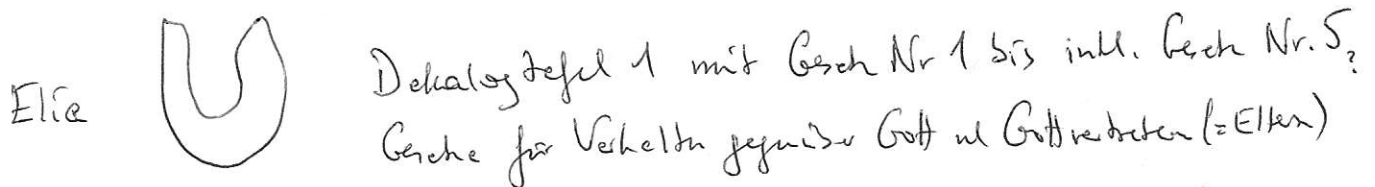 Elia
Dekalogtafel 1 mit Gesetz Nr 1 bis inkl. Gesetz Nr. 5?
Gesetze für Verhalten gegenüber Gott und Gottvertreten (=Eltern)